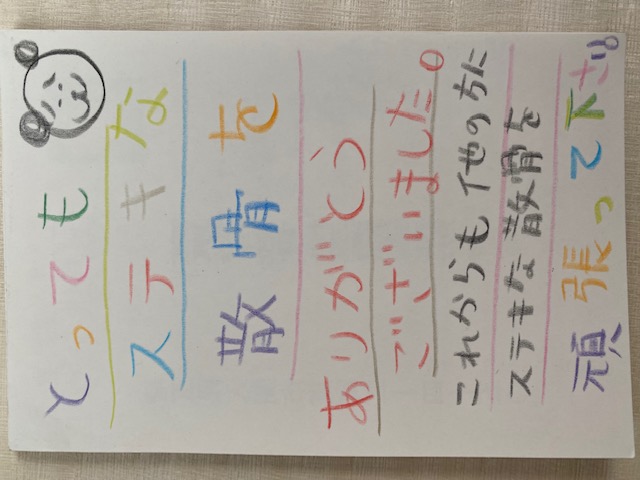 とっても
ステキな
散骨を
ありがとう
ございました。
これからも他の方に
ステキな散骨を
頑張って下さい